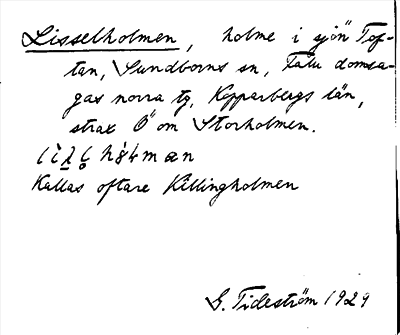 Lisselholmen, holme i sjön Tof-
tan, Sundborns sn, Falu domsa-
gas norra tg, Kopparbergs län,
strax Ö om Storholmen.
Kallas oftare Killingholmen
G. Tideström 1929